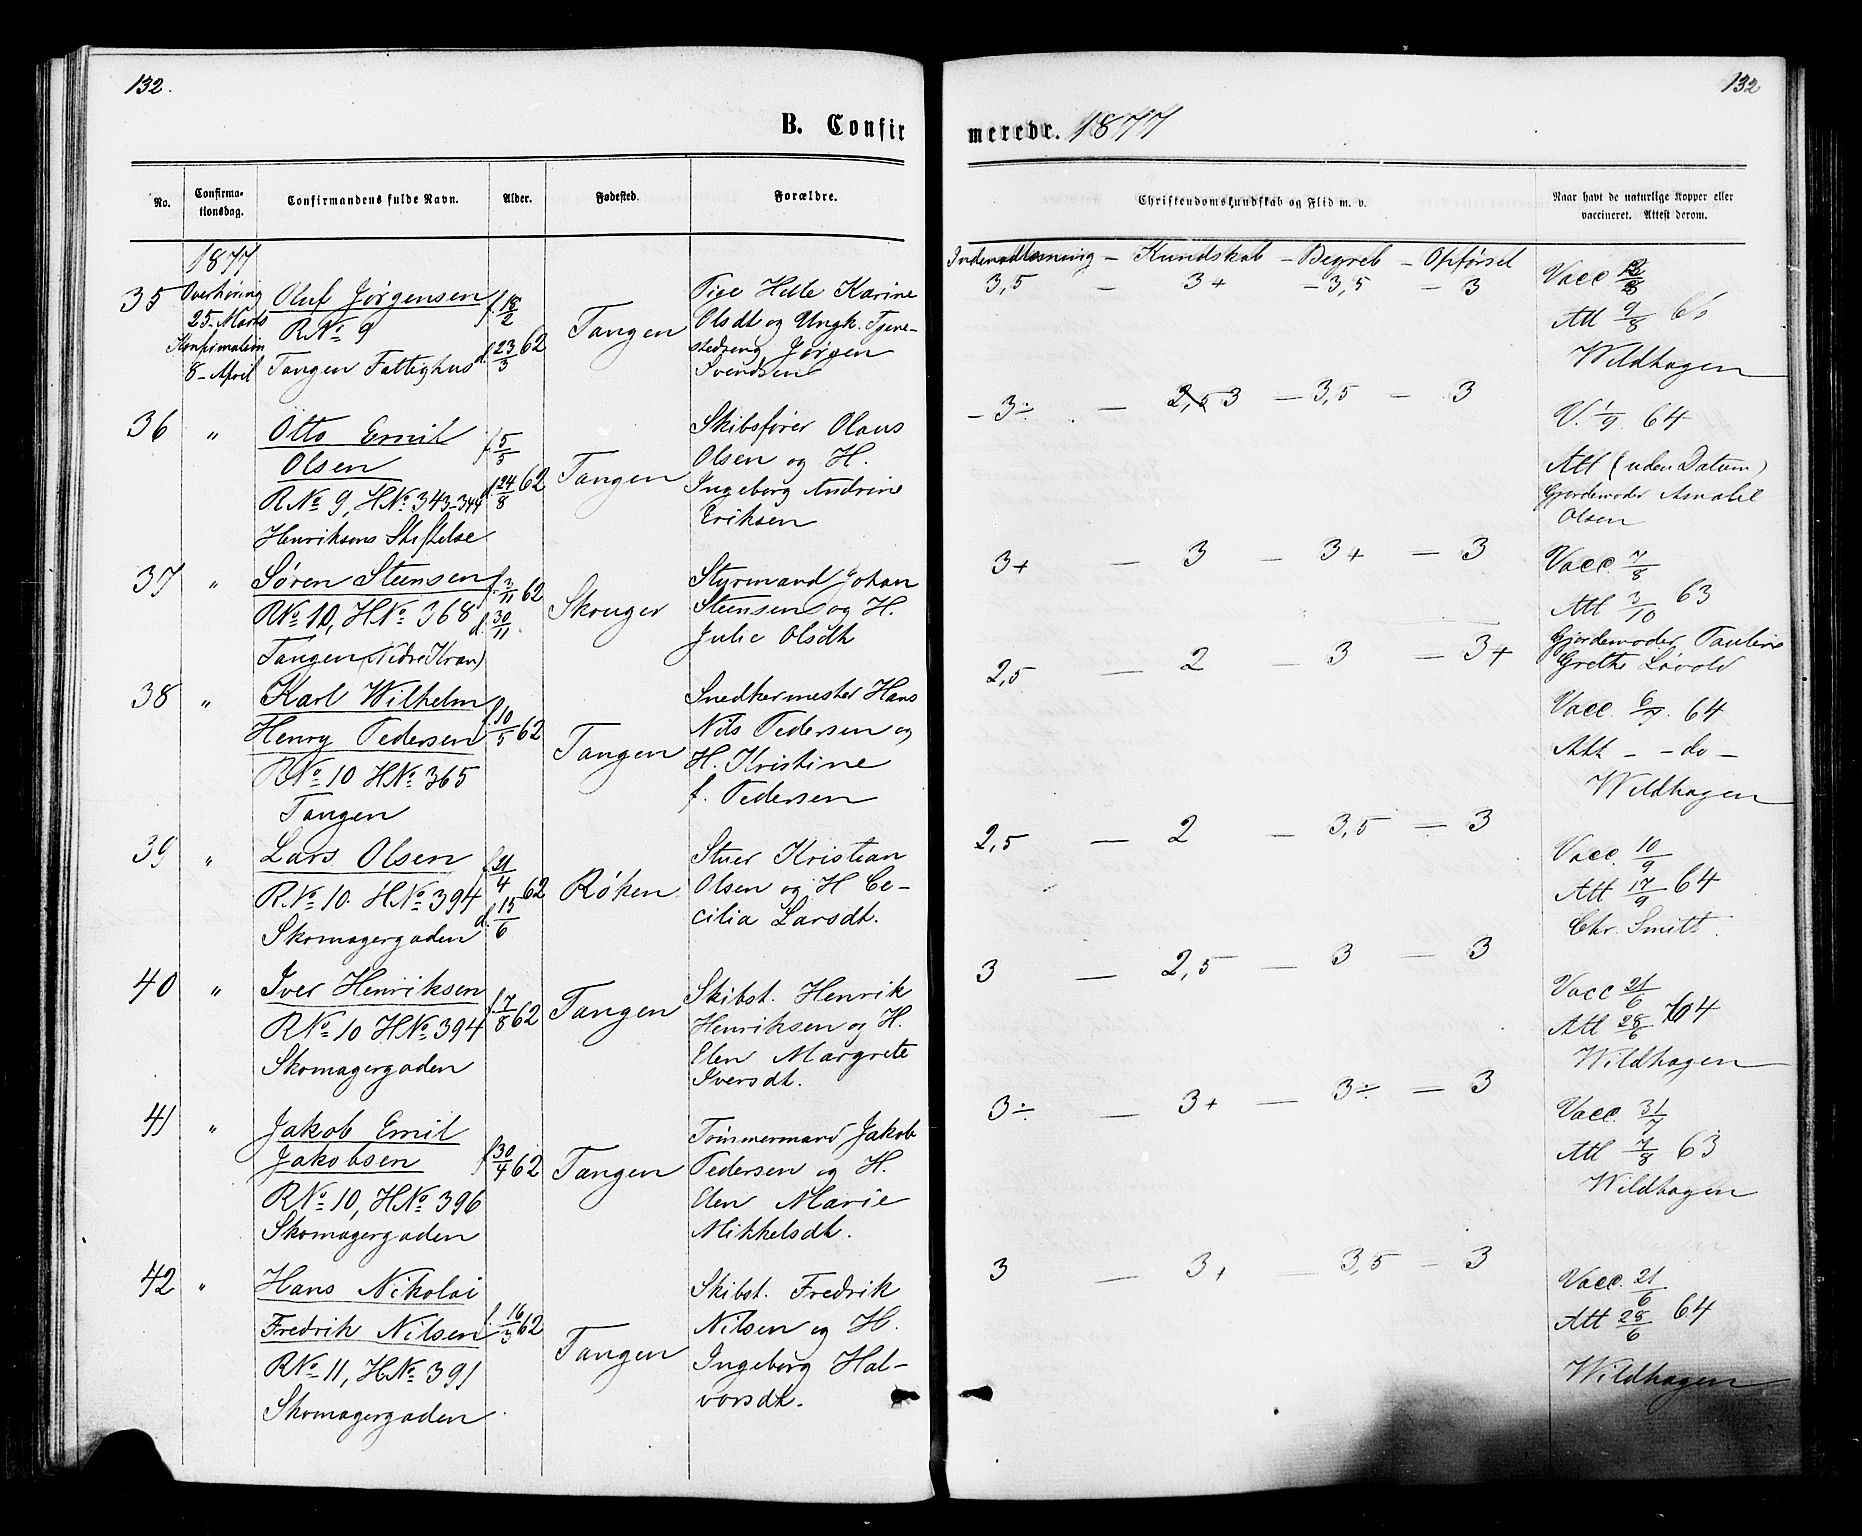 132.
132
B. Confir
merede. 1877
No.
Confirma-
tionsdag.
Confirmandens fulde Navn.
Alder.
Fødested.
Forældre.
Christendomskundskab og Flid m. v.
Naar havt de naturlige Kopper eller
vaccineret. Attest derom.
Indenadlæsning - Kundskab - Begreb - Opførsel
1877
35
Overhøring
25- Marts
Konfirmation
8- April
Oluf Jørgensen
R.No. 9
Tangen Fattighus
f. 18/2
d. 23/3 62
Tangen
Pige Helle Karine
Olsdt og Ungk. Tjene-
Jørgen
Svendsen
3,5 - 3+ - 3,5 - 3
Vacc
Att 9/8 65
Wildhagen
36 "
Otto Emil
Olsen
R No 9, H No 343-344
Henriksens Stiftelse
f. 5/5
d. 24/8 62
Tangen
Skibsfører Olaus
Olsen og H.
Ingeborg Andrine
Eriksen
- 3÷ - 2,5 3 - 3,5 - 3
V. 1/9 64
Att (uden Datum)
Gjordemoder Amalie
Olsen
37 "
Søren Steensen
R No 10, H No 368
Tangen (Nedre Kran)
f. 3/11 62
d. 30/11
Skouger
Styrmand Johan
Steensen og H.
Julie Olsdt
3+ - 3 - 3+ - 3
Vacc. 7/8
Att 3/10 63
Gjordemoder Pauline
Grethe Løvold
38 "
Karl Wilhelm
Henry Pedersen
R No 10 H No 365
Tangen
f. 10/5 62
Tangen
Snedkermester Hans
Nils Pedersen og
H. Kristine
f. Pedersen
2,5 - 2 - 3 - 3+
Vacc. 6/7. 64
Att - - do -
Wildhagen
39 "
Lars Olsen
R. No 10. H No 394
Skomagergaden
f. 21/4 62
d. 15/6
Røken
Stuer Kristian
Olsen og H Ce-
cilia Larsdt.
2,5 - 2 - 3,5 - 3
Vacc. 10/9
Att 17/9 64
Chr. Smitt.
40 "
Iver Henriksen
R No 10 H No 394
Skomagergaden
f. 7/8 62
Tangen
Skibst. Henrik
Henriksen og H.
Elen Margrete
Iversdt.
3 - 2,5 - 3 - 3
Vacc 21/6
Att 28/6 64
Wildhagen
41 "
Jakob Emil
Jakobsen
R No 10, H No 396
Skomagergaden
f. 30/4 62
Tangen
Tømmermand Jakob
Pedersen og H.
Elen Marie
Mikkelsdt.
3÷ - 3+ - 3÷ - 3
Vacc. 31/7
Att 7/8 63
Wildhagen
42 "
Hans Nikolai
Fredrik Nilsen
R No 11, H No 391
Skomagergaden
f. 16/3 62
Tangen
Skibst. Fredrik
Nilsen og H.
Ingeborg Hal-
vorsdt.
3 - 3+ - 3,5 - 3
Vacc. 21/6
Att 28/6 64
Wildhagen